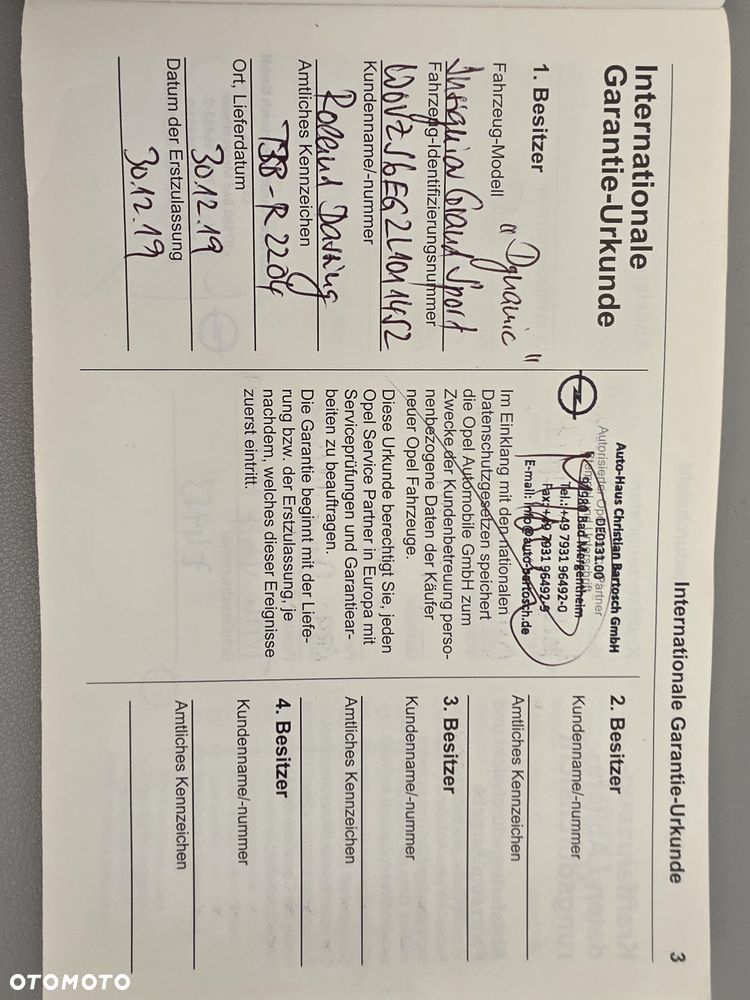 Internationale Garantie-Urkunde 3
Internationale
Garantie-Urkunde
1. Besitzer
Fahrzeug-Modell "Dynamic"
Insignia Grand Sport
Fahrzeug-Identifizierungsnummer
W0VZS6EG2L1011452
Kundenname/-nummer
Rolland
Amtliches Kennzeichen
TBB-R 2204
Ort, Lieferdatum
30.12.19
Datum der Erstzulassung
30.12.19
Auto-Haus Christian Bartosch GmbH
Autorisierter Opel Partner
DE0131.00
97980 Bad Mergentheim
Tel.: +49 7931 96492-0
Fax: +49 7931 96492-9
E-mail: info@auto-bartosch.de
Im Einklang mit den nationalen
Datenschutzgesetzen speichert
die Opel Automobile GmbH zum
Zwecke der Kundenbetreuung perso-
nenbezogene Daten der Käufer
neuer Opel Fahrzeuge.
Diese Urkunde berechtigt Sie, jeden
Opel Service Partner in Europa mit
Serviceprüfungen und Garantiear-
beiten zu beauftragen.
Die Garantie beginnt mit der Liefe-
rung bzw. der Erstzulassung, je
nachdem, welches dieser Ereignisse
zuerst eintritt.
2. Besitzer
Kundenname/-nummer
Amtliches Kennzeichen
3. Besitzer
Kundenname/-nummer
Amtliches Kennzeichen
4. Besitzer
Kundenname/-nummer
Amtliches Kennzeichen
OTOMOTO